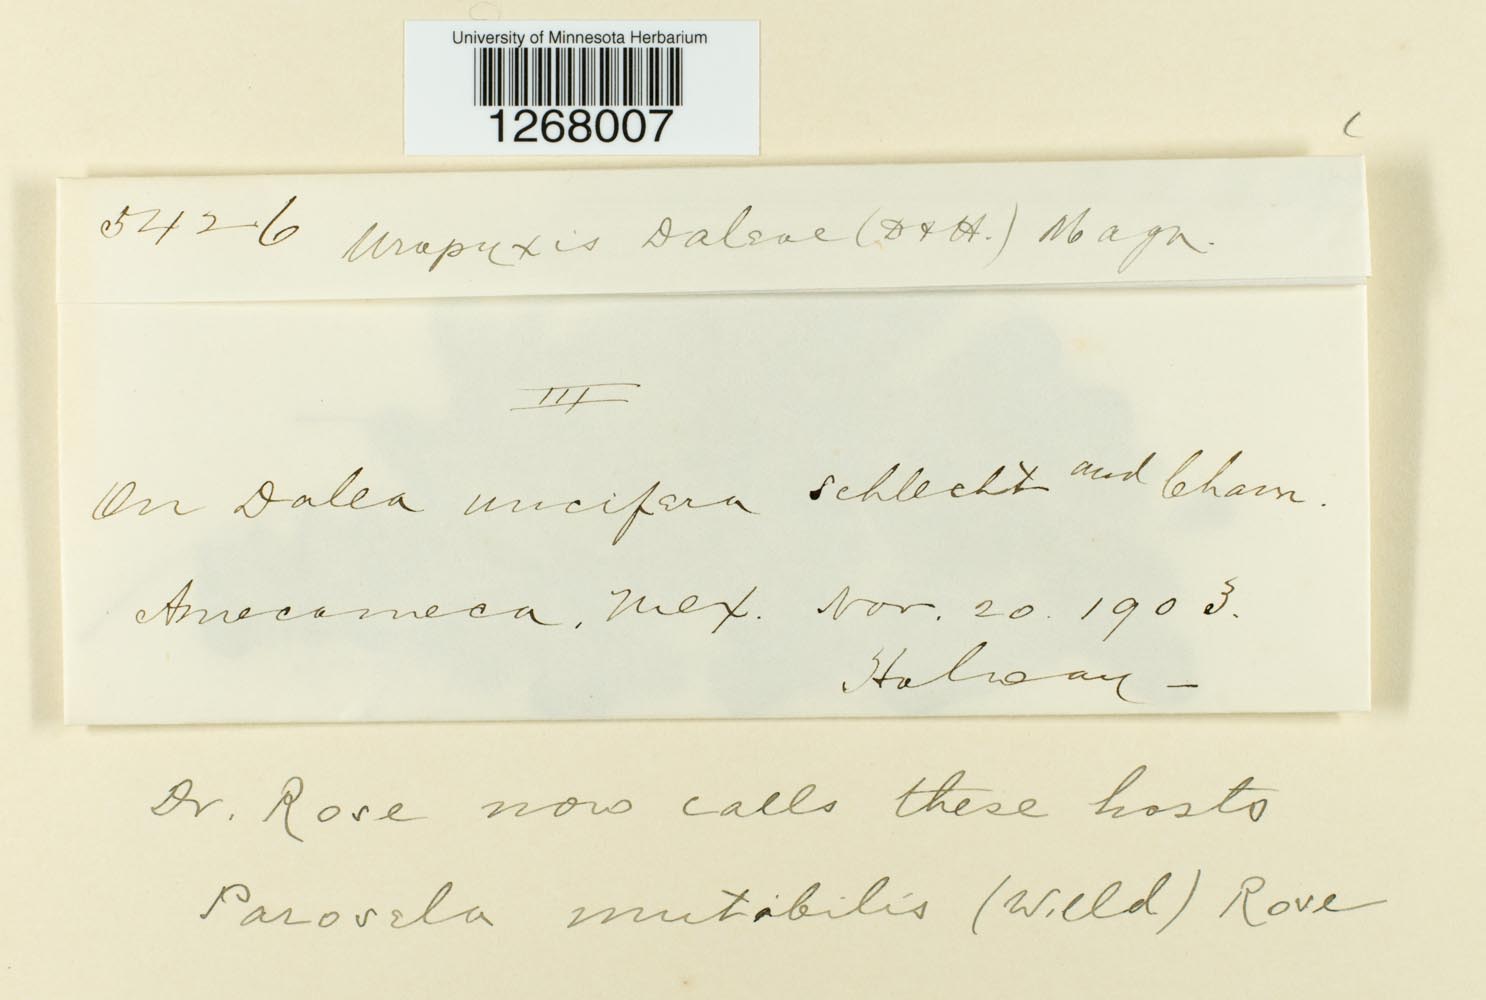 University of Minnesota Herbarium
1268007
5426 Uropyxis Daleae (D+H.) Magn.
III
On Dalea uncifera Schlecht and Cham.
Amecameca, Mex. Nov. 20. 1903.
Holway –
Dr. Rose now calls these hosts
Parosela mutabilis (Willd) Rose